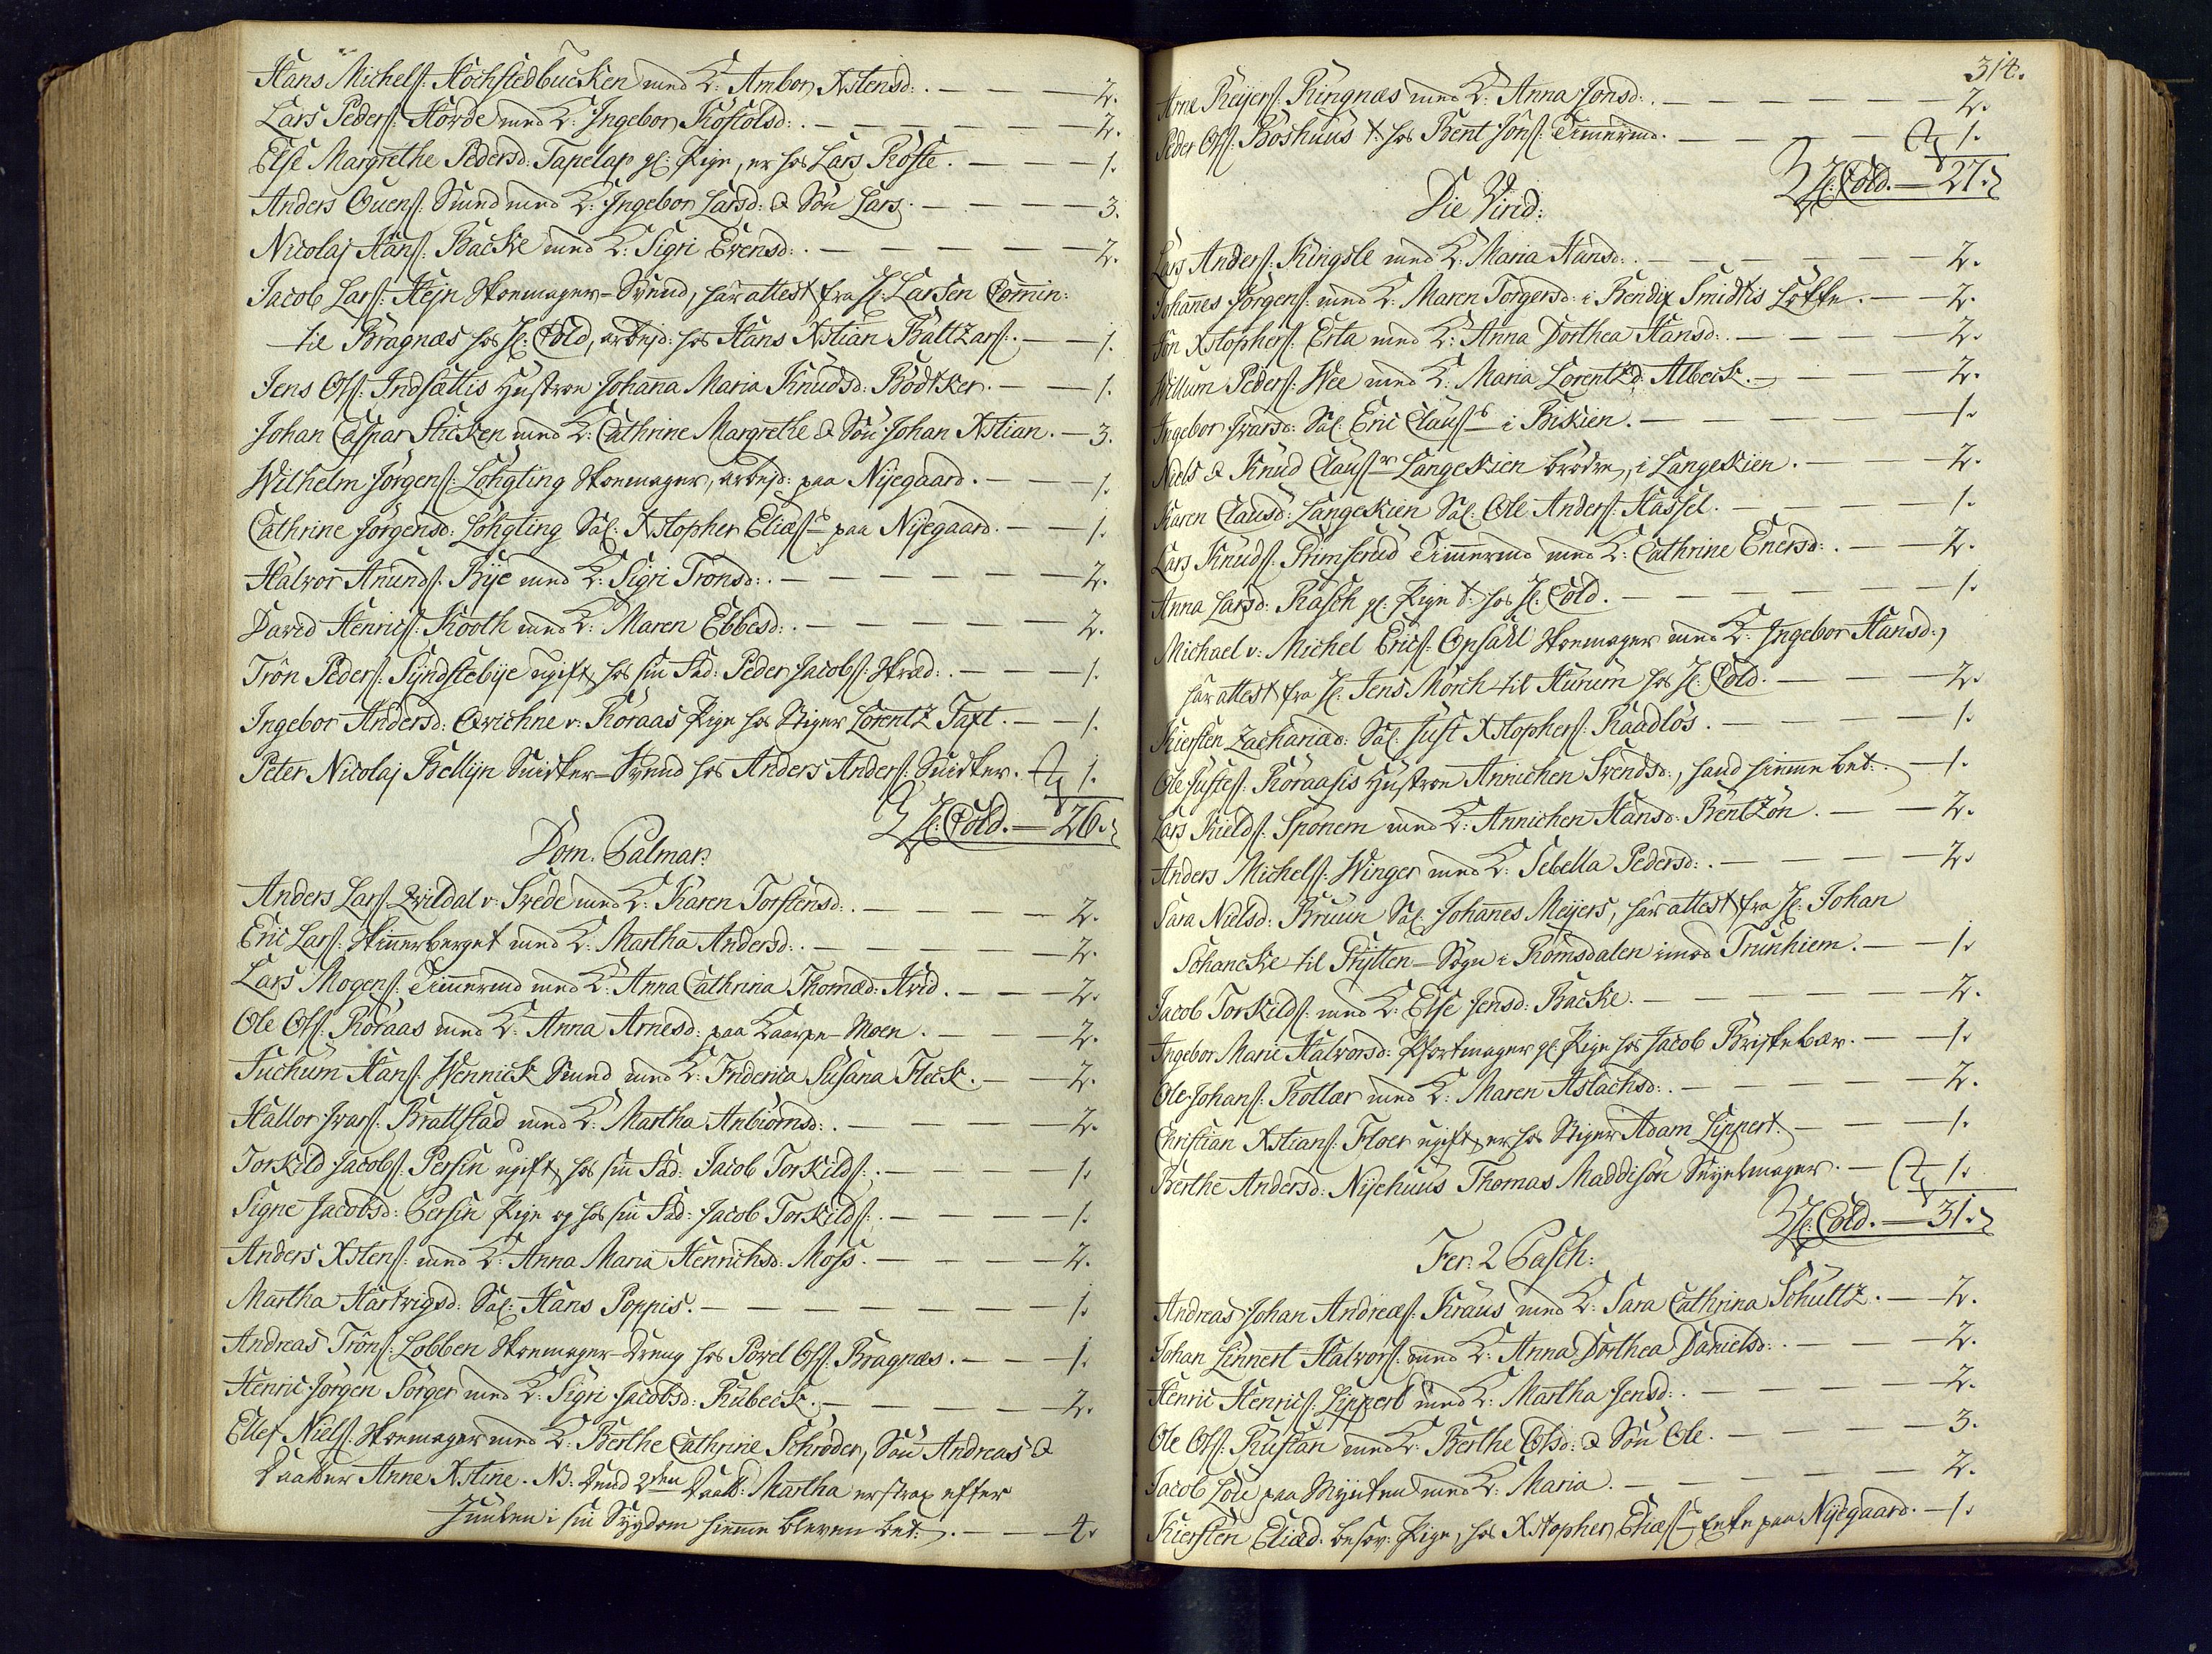 Hans Michels: Hochstedbucken med K: Ambor Xstensd: . — — — 2.
Lars Peders: Horde med K: Ingebor Roskolsd: . — — — — — 2.
Else Margrethe Pedersd: Tapelap gl: Pige, er hos Lars Röste. — — — 1.
Anders Ouens: Smed med K: Ingebor Larsd: & Sön Lars. — — — — 3.
Nicolaj Hans: Backe med K: Sigri Evensd: . — — — — — — 2.
Jacob Lars: Hejn Skomager-Svend, har attest fra H: Larsen Comin:
til Bragnæs hos H: Cold, arbejd: hos Hans Xstian Baltzars: . — — 1.
Jens Ols: Indsættis Hustroe Johanna Maria Knudsd: Bödtker. — — 1.
Johan Caspar Sticken med K: Cathrine Margrethe & Sön Johan Xstian. — 3.
Wilhelm Jörgens: Löhgting Skomager, arbejd: paa Nijegaard. — — — 1.
Cathrine Jörgensd: Löhgting Sal: Xstopher Eliæs: paa Nijegaard. — — 1.
Halvor Anunds: Bije med K: Sigri Tronsd: . — — — — — — 2.
David Henrics: Kooth med K: Maren Ebbesd: . — — — — — — 2.
Trön Peders: Syndstebije ugift, hos sin Fad: Peder Jacobs: Skræd: . — — 1.
Ingebor Andersd: Qvichne v: Röraas Pige hos Stiger Lorentz Taxt. — — 1.
Peter Nicolaj Bellijn Snidker-Svend hos Anders Anders: Snidker. 1.
H: Cold. — 26.
Dom. Palmar:
Anders Lars: Qvildal v: Svede med K: Karen Torstensd: . — — — — 2.
Eric Lars: Skinnerberget med K: Martha Andersd: . — — — — — 2.
Lars Mogens: Timermd med K: Anna Cathrina Thomæd: Hvid. — — — 2.
Ole Ols: Röraas med K: Anna Arnesd: paa Kaarpe-Moen. — — — — 2.
Juchum Hans: Wennick Smed med K: Friderica Susana Fleck. — — 2.
Hallor Ivars: Brattstad med K: Martha Anbiörnsd: . — — — — — 2.
Torkild Jacobs: Persin ugift, hos sin Fad: Jacob Torkilds: . — — — — 1.
Signe Jacobsd: Persin Pige og hos sin Fad: Jacob Torkilds: . — — — — 1.
Anders Xstens: med K: Anna Maria Henrichsd: Moss. — — — — — 2.
Martha Hartvigsd: Sal: Hans Poppis. — — — — — — — 1.
Andreas Tröns: Lobben Skomager-Dreng hos Povel Ols: Bragnæs. — — — 1.
Henric Jörgen Sörger med K: Sigri Jacobsd: Rübeck. — — — — — 2.
Ellef Niels: Skomager med K: Berthe Cathrine Schröder, Sön Andreas &
Daatter Anne Xstine. NB: Dend 2den Daatt: Martha er strax efter
Juulen i sin Sygdom hiemme bleven bet: . — — — 4.
314.
Arne Reijers: Ringnæs med K: Anna Jonsd: . — — — — — — 2.
Peder Ols: Boshuus t: hos Bent Jöns: Timermd. — — — 1.
H: Cold. — 27.
Die Virid:
Lars Anders: Kingsle med K: Maria Hansd: . — — — — — — 2.
Johannes Jörgens: med K: Maren Torgersd: i Bendix Smidtis Løkke. — — 2.
Jön Xstophers: Erta med K: Anna Dorthea Hansd: . — — — — 2.
Willum Peders: Wee med K: Maria Lorentzd: Albeck. — — — — 2.
Ingebor Ivarsd: Sal: Eric Claus: i Bikien. — — — — — — 1.
Niels & Knud Claus: Langekien Brödre, i Langekien. — — — 2.
Karen Clausd: Langekien Sal: Ole Anders: Hassel. — — — — 1.
Lars Knuds: Primserud Timermd med K: Cathrine Enersd: . — — — 2.
Anna Larsd: Rasch gl: Pige t: hos H: Cold. — — — — — — 1.
Michael v: Michel Erics: Opsahl Skomager med K: Ingebor Hansd:,
har attest fra H: Jens Mörch til Hurum hos H: Cold. — — — — 2.
Kiersten Zachariæd: Sal: Just Xstophers: Raadlös. — — — — — 1.
Ole Justes: Röraasis Hustroe Annichen Svendsd:, hand hiemme bet: . — 1.
Lars Kields: Sponem med K: Annichen Hansd: Bentzön. — — — 2.
Anders Michels: Winger med K: Sebella Pedersd: . — — — — — 2.
Sara Nielsd: Bruun Sal: Johannes Meijers, har attest fra H: Johan
Schancke til Grytten-Sogn i Romsdalen imod Trunhiem. — — 1.
Jacob Torkilds: med K: Else Jensd: Backe. — — — — — — 2.
Ingebor Marie Halvorsd: Skortmager gl: Pige hos Jacob Briskebær. — — 1.
Ole Johans: Kottær med K: Maren Aslachsd: . — — — — — 2.
Christian Xstians: Floer ugift, er hos Stiger Adam Lippert. — — — 1.
Berthe Andersd: Nijehuus Thomas Maddisön Segelmager. — 1.
H: Cold. — 31.
Fer: 2 Pasch:
Andreas Johan Andreæs: Kraus med K: Sara Cathrina Schultz. — — 2.
Johan Linnert Halvors: med K: Anna Dorthea Danielsd: . — — — 2.
Henric Henrics: Lippert med K: Martha Jensd: . — — — — — 2.
Ole Ols: Rustan med K: Berthe Olsd: & Sön Ole. — — — — — 3.
Jacob Löe paa med K: Maria. — — — — — — 2.
Kiersten Eliæd: besov: Pige, hos Xstopher Eliæs: Enke paa Nijegaard. — 1.